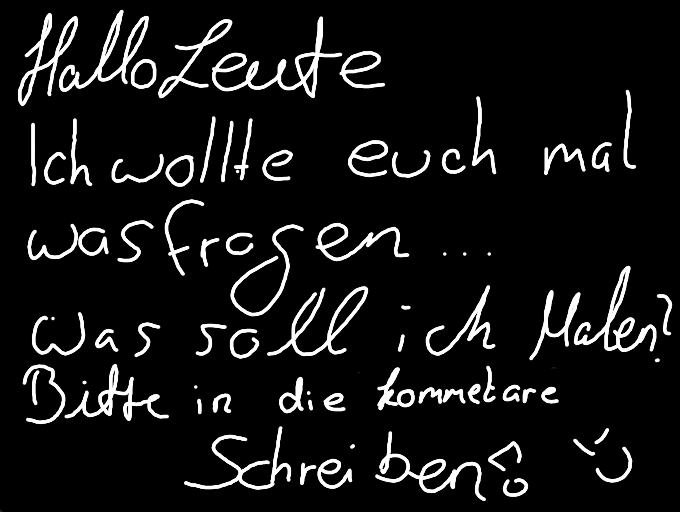 Hallo Leute
Ich wollte euch mal
was fragen...
was soll ich Malen?
Bitte in die kommetare
Schreiben